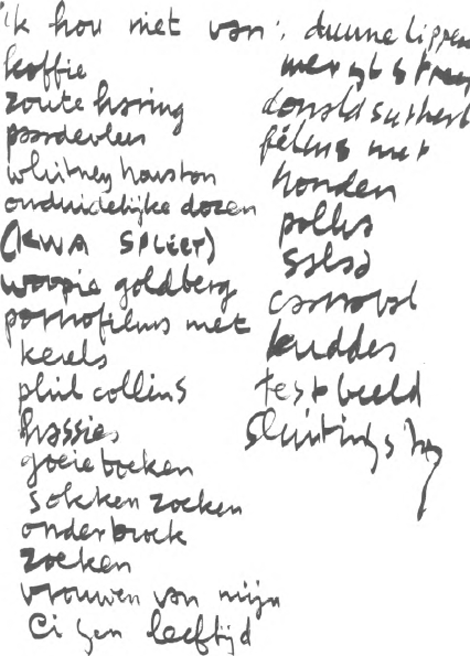 ik hou niet van:
koffie
zoute haring
paardevlees
whitney houston
onduidelijke dozen
(KWA SPLEET)
woopie goldberg
pornofilms met
kerels
phil collins
hassies
goeie boeken
sokken zoeken
onderbroek
zoeken
vrouwen van mijn
eigen leeftijd
dunne lippen
meryl streep
donald sutherl
films met
honden
polka
salsa
carnaval
kuddes
testbeeld
sluitings